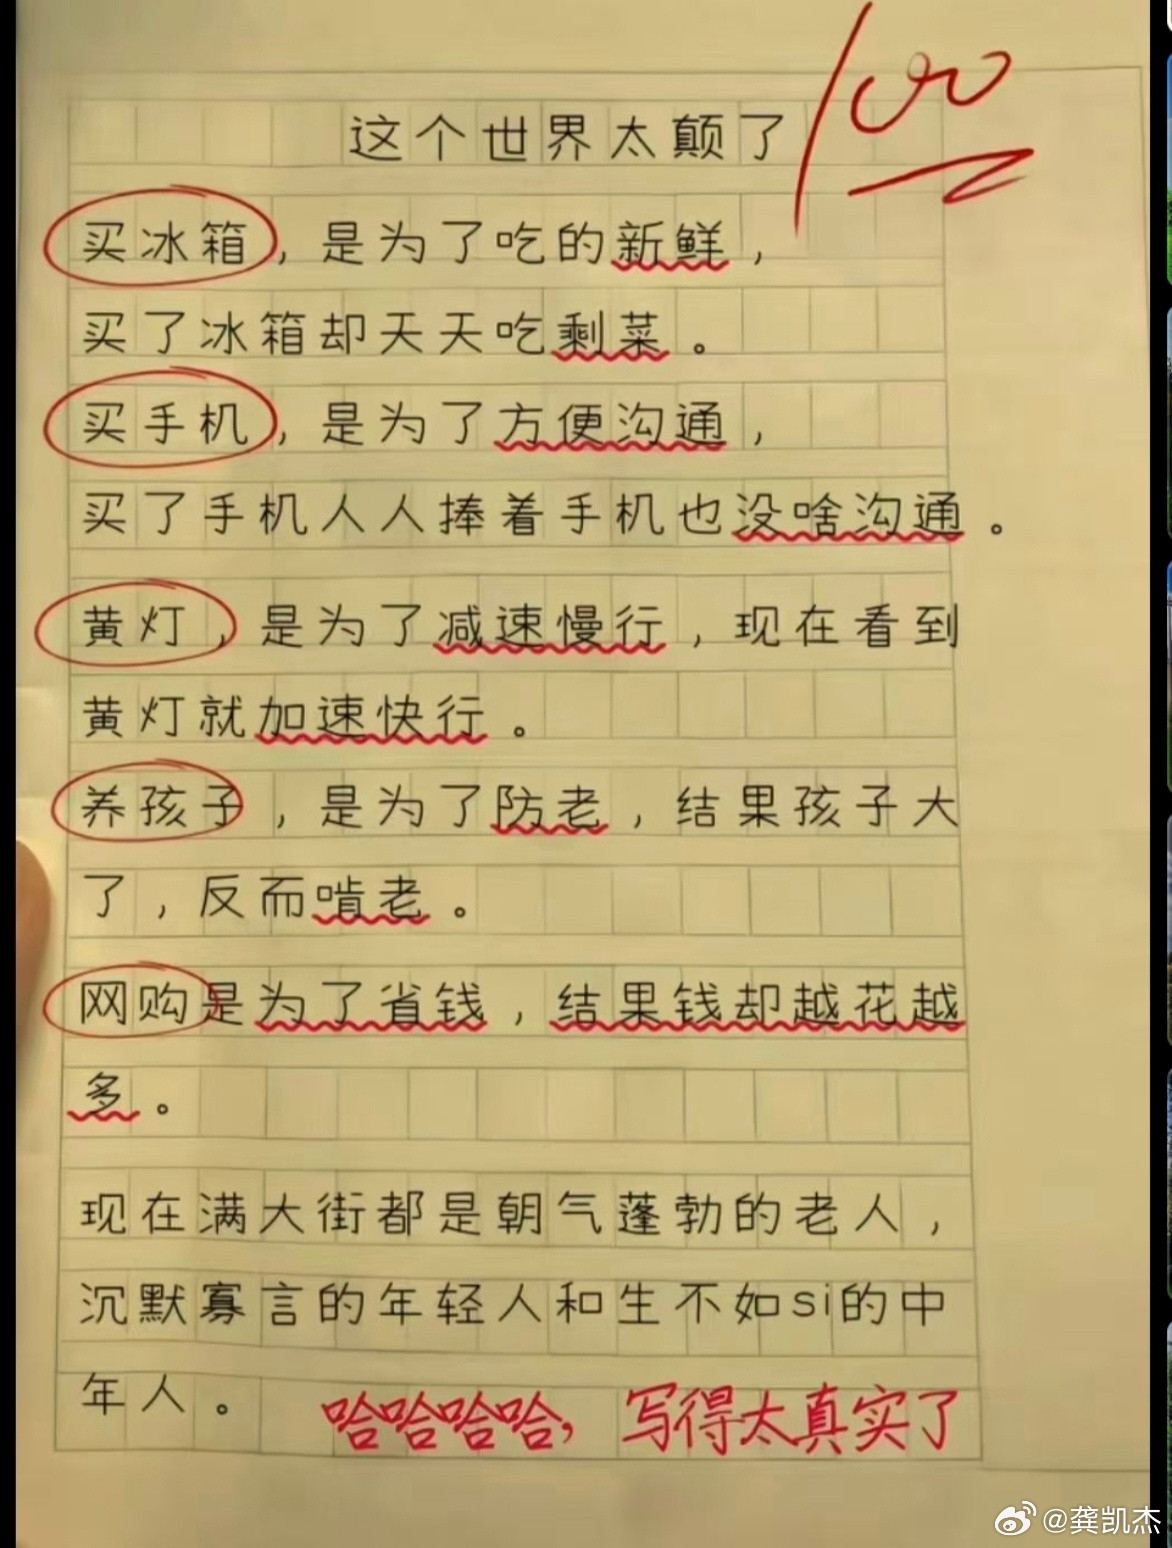 这个世界太颠了
100
买冰箱，是为了吃的新鲜，
买了冰箱却天天吃剩菜。
买手机，是为了方便沟通，
买了手机人人捧着手机也没啥沟通。
黄灯，是为了减速慢行，现在看到
黄灯就加速快行。
养孩子，是为了防老，结果孩子大
了，反而啃老。
网购是为了省钱，结果钱却越花越
多。
现在满大街都是朝气蓬勃的老人，
沉默寡言的年轻人和生不如si的中
年人。
哈哈哈哈，写得太真实了
@龚凯杰